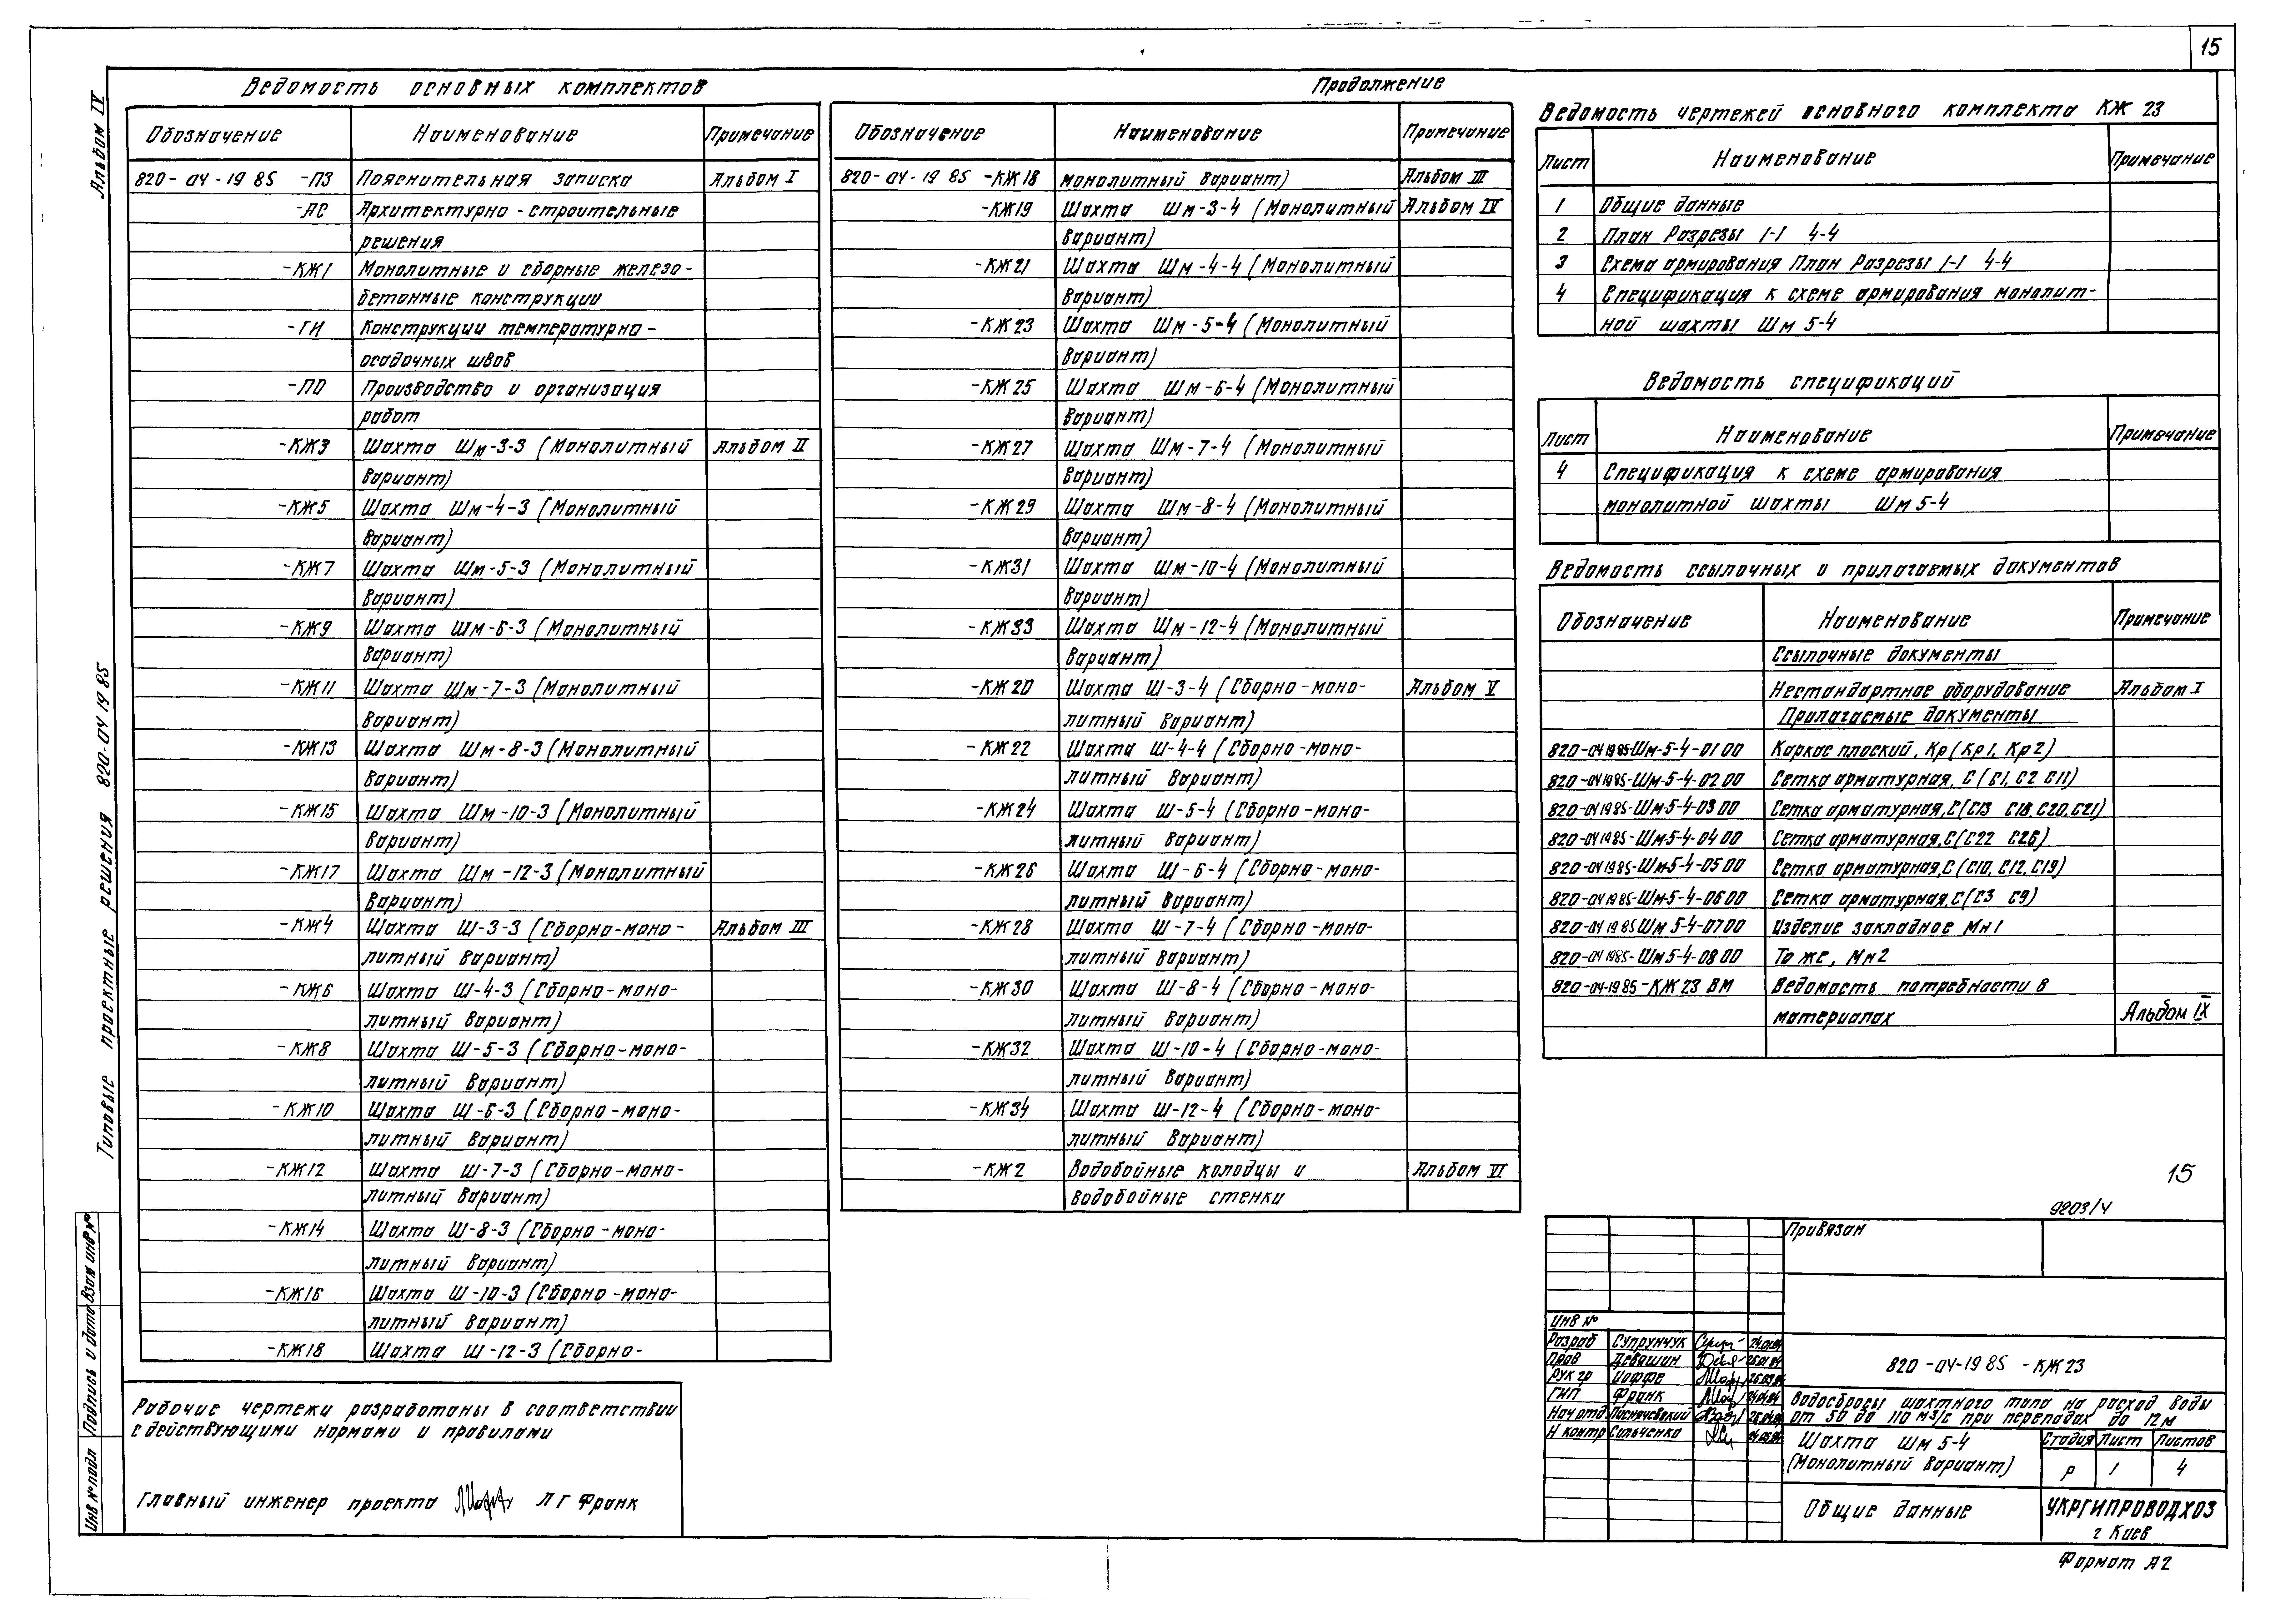 15
Альбом IV
Типовые проектные решения 820-04 19 85
Взам инв №
Подпись и дата
Инв № подл
Ведомость основных комплектов
Обозначение Наименование Примечание
820-04-19 85 -ПЗ Пояснительная записка Альбом I
-АС Архитектурно-строительные
решения
-КЖ1 Монолитные и сборные железо-
бетонные конструкции
-ГИ Конструкции температурно-
осадочных швов
-ПО Производство и организация
работ
-КЖ3 Шахта Шм-3-3 (Монолитный Альбом II
вариант)
-КЖ5 Шахта Шм-4-3 (Монолитный
вариант)
-КЖ7 Шахта Шм-5-3 (Монолитный
вариант)
-КЖ9 Шахта Шм-6-3 (Монолитный
вариант)
-КЖ11 Шахта Шм-7-3 (Монолитный
вариант)
-КЖ13 Шахта Шм-8-3 (Монолитный
вариант)
-КЖ15 Шахта Шм-10-3 (Монолитный
вариант)
-КЖ17 Шахта Шм-12-3 (Монолитный
вариант)
-КЖ4 Шахта Ш-3-3 (Сборно-моно- Альбом III
литный вариант)
-КЖ6 Шахта Ш-4-3 (Сборно-моно-
литный вариант)
-КЖ8 Шахта Ш-5-3 (Сборно-моно-
литный вариант)
-КЖ10 Шахта Ш-6-3 (Сборно-моно-
литный вариант)
-КЖ12 Шахта Ш-7-3 (Сборно-моно-
литный вариант)
-КЖ14 Шахта Ш-8-3 (Сборно-моно-
литный вариант)
-КЖ16 Шахта Ш-10-3 (Сборно-моно-
литный вариант)
-КЖ18 Шахта Ш-12-3 (Сборно-
Рабочие чертежи разработаны в соответствии
с действующими нормами и правилами
Главный инженер проекта Л Г Франк
Продолжение
Обозначение Наименование Примечание
820-04-19 85 -КЖ18 монолитный вариант) Альбом III
-КЖ19 Шахта Шм-3-4 (Монолитный Альбом IV
вариант)
-КЖ21 Шахта Шм-4-4 (Монолитный
вариант)
-КЖ23 Шахта Шм-5-4 (Монолитный
вариант)
-КЖ25 Шахта Шм-6-4 (Монолитный
вариант)
-КЖ27 Шахта Шм-7-4 (Монолитный
вариант)
-КЖ29 Шахта Шм-8-4 (Монолитный
вариант)
-КЖ31 Шахта Шм-10-4 (Монолитный
вариант)
-КЖ33 Шахта Шм-12-4 (Монолитный
вариант)
-КЖ20 Шахта Ш-3-4 (Сборно-моно- Альбом V
литный вариант)
-КЖ22 Шахта Ш-4-4 (Сборно-моно-
литный вариант)
-КЖ24 Шахта Ш-5-4 (Сборно-моно-
литный вариант)
-КЖ26 Шахта Ш-6-4 (Сборно-моно-
литный вариант)
-КЖ28 Шахта Ш-7-4 (Сборно-моно-
литный вариант)
-КЖ30 Шахта Ш-8-4 (Сборно-моно-
литный вариант)
-КЖ32 Шахта Ш-10-4 (Сборно-моно-
литный вариант)
-КЖ34 Шахта Ш-12-4 (Сборно-моно-
литный вариант)
-КЖ2 Водобойные колодцы и Альбом VI
водобойные стенки
Ведомость чертежей основного комплекта КЖ 23
Лист Наименование Примечание
1 Общие данные
2 План Разрезы 1-1 4-4
3 Схема армирования План Разрезы 1-1 4-4
4 Спецификация к схеме армирования монолит-
ной шахты Шм 5-4
Ведомость спецификаций
Лист Наименование Примечание
4 Спецификация к схеме армирования
монолитной шахты Шм 5-4
Ведомость ссылочных и прилагаемых документов
Обозначение Наименование Примечание
Ссылочные документы
Нестандартное оборудование Альбом I
Прилагаемые документы
820-04 19 85-Шм-5-4-01 00 Каркас плоский, Кр (Кр1, Кр2)
820-04 19 85-Шм-5-4-02 00 Сетка арматурная, С (С1, С2 С11)
820-04 19 85-Шм-5-4-03 00 Сетка арматурная, С (С13 С18, С20, С21)
820-04 19 85-Шм-5-4-04 00 Сетка арматурная, С (С22 С26)
820-04 19 85-Шм-5-4-05 00 Сетка арматурная, С (С10, С12, С19)
820-04 19 85-Шм-5-4-06 00 Сетка арматурная, С (С3 С9)
820-04 19 85 Шм 5-4-07 00 Изделие закладное Мн1
820-04 19 85-Шм 5-4-08 00 То же, Мн2
820-04-19 85-КЖ 23 ВМ Ведомость потребности в
материалах Альбом IX
15
9203/4
Привязан
Инв №
Разраб Супрунчук 24.01.84
Пров Девяшин 25.01.84
Рук гр Иоффе
ГИП Франк
Нач отд
Н контр Сильченко
820-04-19 85 -КЖ 23
Водосбросы шахтного типа на расход воды
от 50 до 110 м3/с при перепадах до 12 м
Шахта Шм 5-4
(Монолитный вариант)
Стадия Лист Листов
Р 1 4
Общие данные
УКРГИПРОВОДХОЗ
г Киев
Формат А2